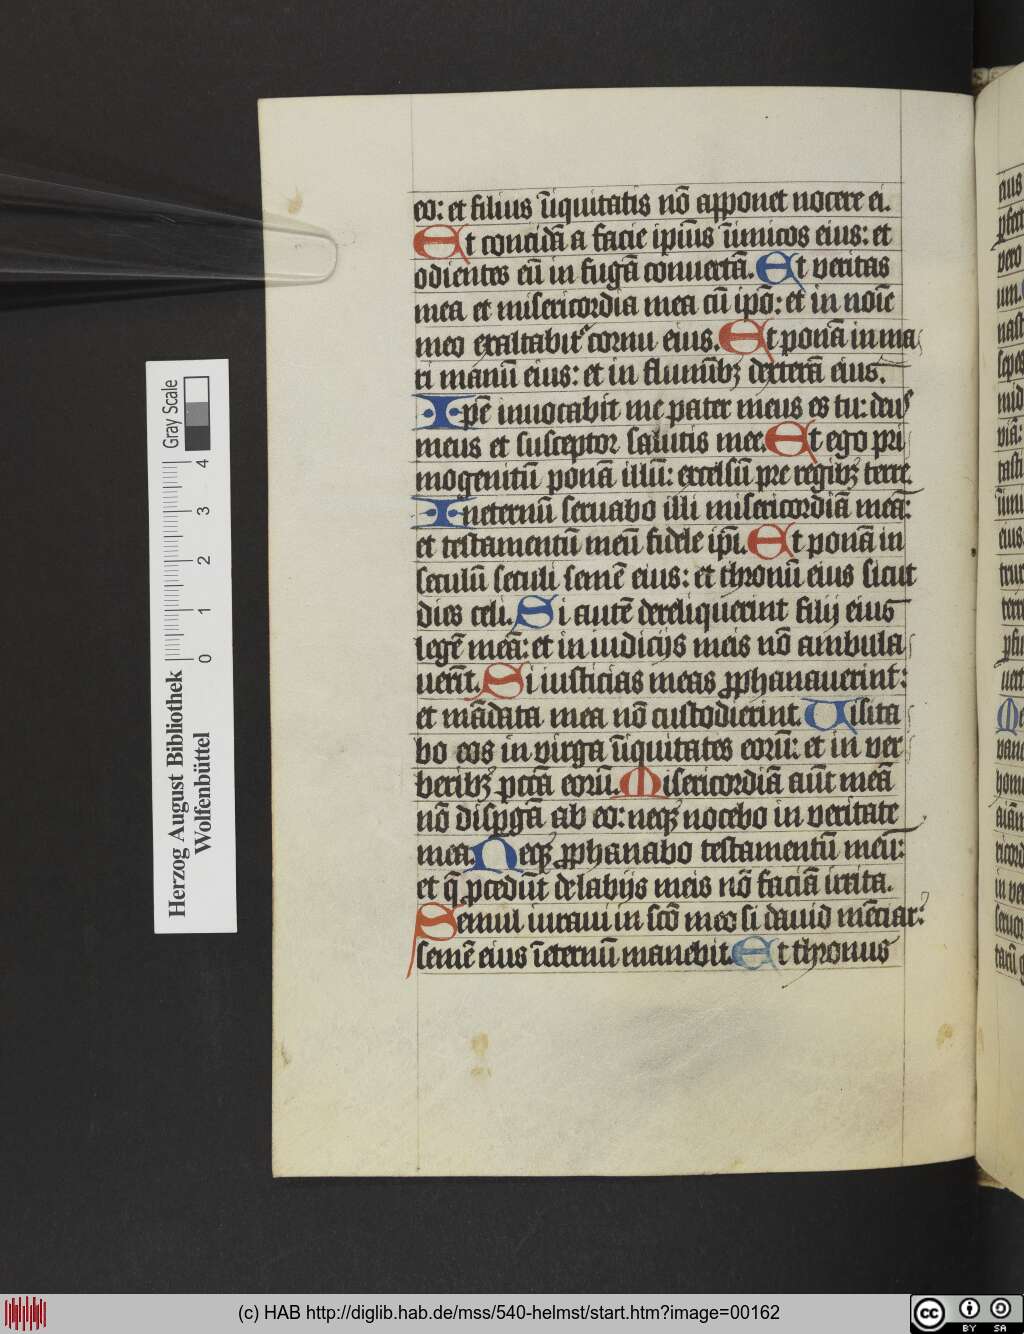 eo: et filius ūiquitatis nō apponet nocere ei.
Et concidā a facie ipīus ūimicos eius: et
odientes eū in fugā conuertā. Et veritas
mea et misericordia mea cū ipō: et in noīe
meo exaltabit᷑ cornu eius. Et ponā in ma
ri manū eius: et in fluminibꝫ dexterā eius.
Ipē inuocabit me pater meus es tu: deus
meus et susceptor salutis mee. Et ego pri
mogenitū ponā illū: excelsū pre regibꝫ terre.
Ineternū seruabo illi misericordiā meā:
et testamentū meū fidele ipī. Et ponā in
seculū seculi semē eius: et thronū eius sicut
dies celi. Si autē dereliquerint filij eius
legē meā: et in iudicijs meis nō ambula
uerīt. Si iusticias meas ꝓphanauerint:
et mādata mea nō custodierint. Uisita
bo eos in virga ūiquitates eorū: et in ver
beribꝫ pctā eorū. Misericordiā aūt meā
nō dispgā ab eo: neqꝫ nocebo in veritate
mea. Neqꝫ ꝓphanabo testamentū meū:
et q̄ ꝓcedūt delabijs meis nō faciā irrita.
Semul iuraui in scō meo si dauid mēciar:
semē eius īeternū manebit. Et thronus
Gray Scale
4
3
2
1
0
Herzog August Bibliothek
Wolfenbüttel
(c) HAB http://diglib.hab.de/mss/540-helmst/start.htm?image=00162
cc
BY SA